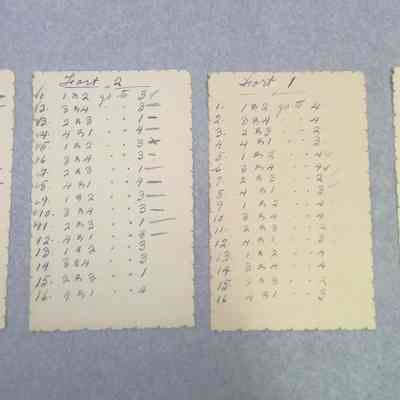 Fort 2
1. 1 & 2 go to 3 ✓
2. 3 & 4 " " 3 —
3. 2 & 3 " " 1 —
4. 4 & 1 " " 4 —
5. 1 & 2 " " 3
6 3 & 4 " " 3 —
7. 2 & 3 " " 1 —
8. 4 & 1 " " 4 —
9. 1 & 2 " " 3 —
10. 3 & 4 " " 3 —
11. 2 & 3 " " 1 —
12. 4 & 1 " " 4 —
13 1 & 2 " " 3
14 3 & 4 " " 3
15. 2 & 3 " " 1
16. 4 & 1 " " 4
Fort 1
1. 1 & 2 go to 4
2. 3 & 4 " " 4
3. 2 & 3 " " 2
4 4 & 1 " " 3
5. 1 & 2 " " 4 ✓
6. 3 & 4 " " 4 ✓
7. 2 & 3 " " 2
8. 4 & 1 " " 3
9. 1 & 2 " " 4
10 3 & 4 " " 4
11. 2 & 3 " " 2
12 4 & 1 " " 3
13. 1 & 2 " " 4
14 3 & 4 " " 4
15. 2 & 3 " " 2
16 4 & 1 " " 3